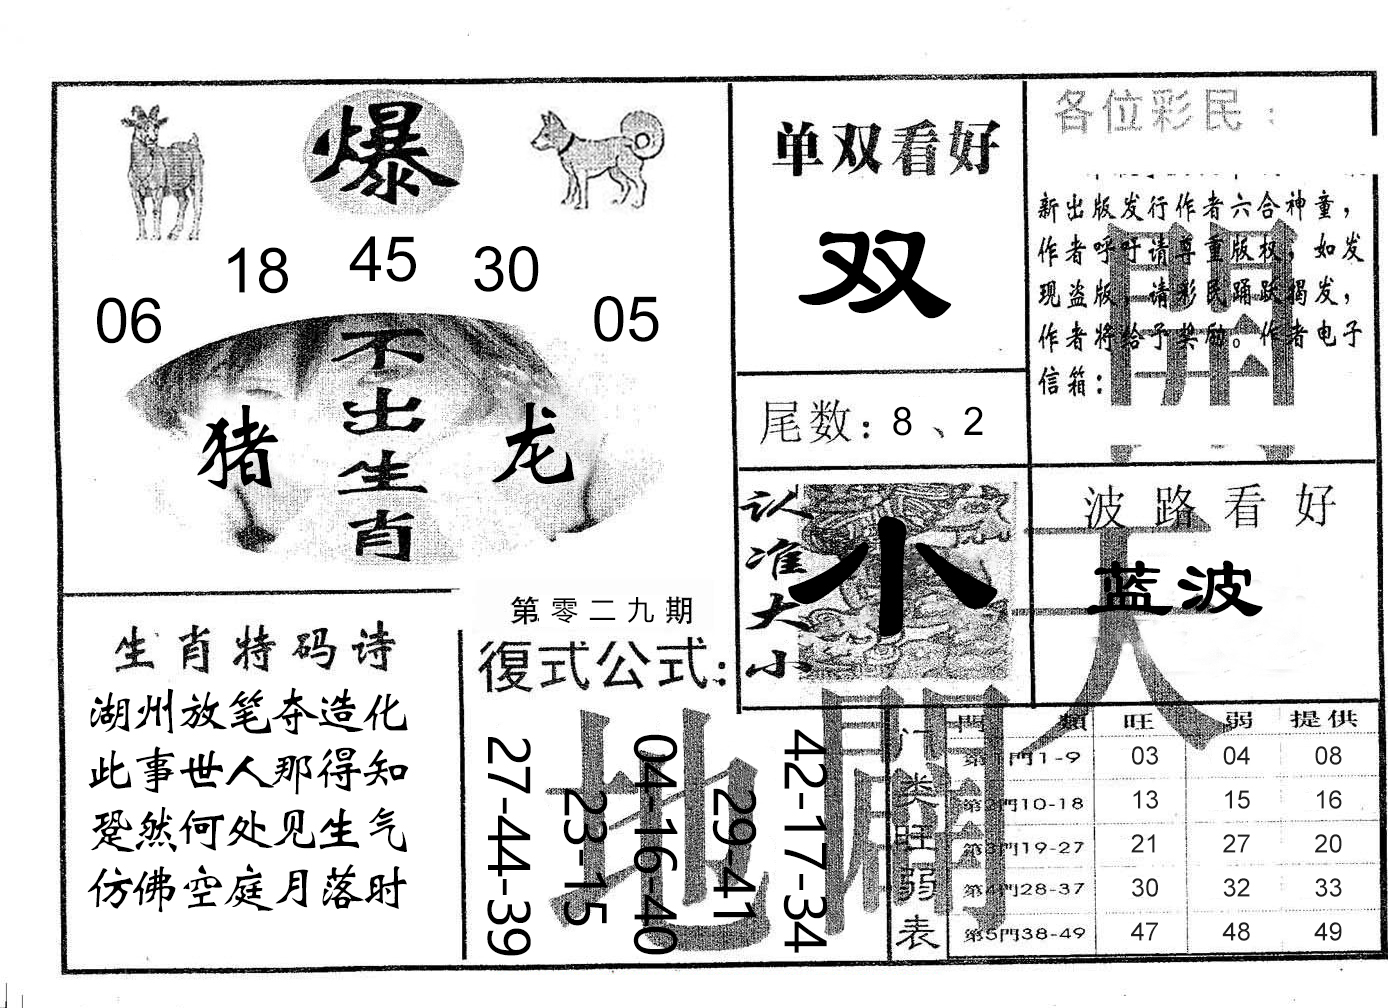 爆
18 45 30
06 05
不出生肖
猪 龙
单双看好
双
尾数：8、2
各位彩民：
新出版发行作者六合神童，
作者呼吁请尊重版权，如发
现盗版，请彩民踊跃揭发，
作者将给予奖励。作者电子
信箱：
認准大小
小
波路看好
蓝波
生肖特码诗
湖州放笔夺造化
此事世人那得知
跫然何处见生气
仿佛空庭月落时
第零二九期
復式公式：
27-44-39
23-15
04-16-40
29-41
42-17-34
天地開
门类旺弱表
門類 旺 弱 提供
第1門1-9 03 04 08
第2門10-18 13 15 16
第3門19-27 21 27 20
第4門28-37 30 32 33
第5門38-49 47 48 49